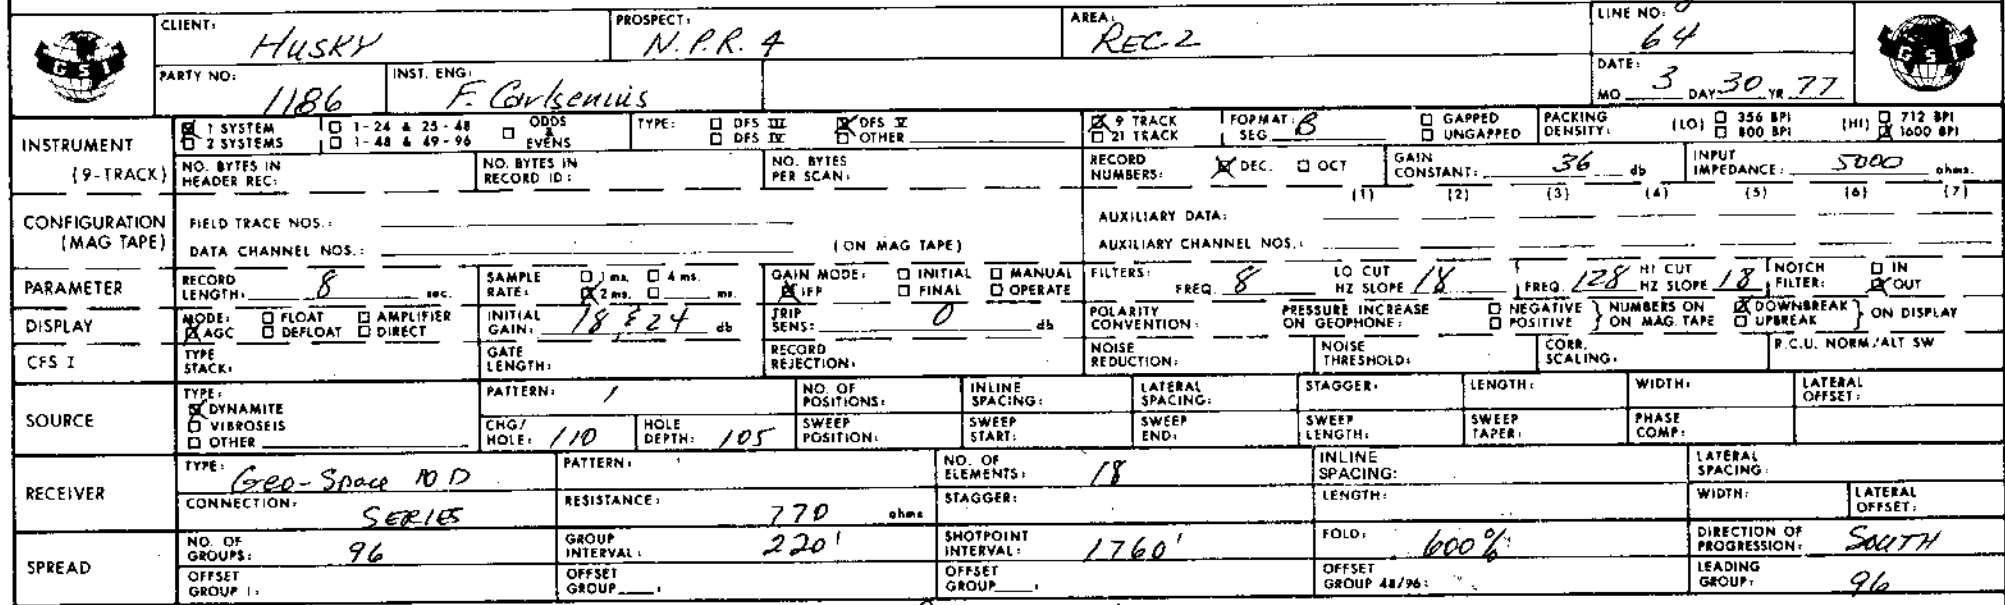 CLIENT: HUSKY PROSPECT: N.P.R. 4 AREA: REC 2 LINE NO: 64
GSI GSI
PARTY NO: 1186 INST. ENG: F. Carlsenius DATE: MO 3 DAY 30 YR 77
INSTRUMENT (9-TRACK)
☒ 1 SYSTEM ☐ 1 - 24 & 25 - 48 ☐ ODDS & EVENS TYPE: ☐ DFS III ☒ DFS V ☒ 9 TRACK FORMAT: SEG B ☐ GAPPED PACKING DENSITY: (LO) ☐ 356 BPI (HI) ☐ 712 BPI
☐ 2 SYSTEMS ☐ 1 - 48 & 49 - 96 ☐ DFS IV ☐ OTHER ☐ 21 TRACK ☐ UNGAPPED ☐ 800 BPI ☒ 1600 BPI
NO. BYTES IN HEADER REC: NO. BYTES IN RECORD ID: NO. BYTES PER SCAN: RECORD NUMBERS: ☒ DEC. ☐ OCT GAIN CONSTANT: 36 db INPUT IMPEDANCE: 5000 ohms.
CONFIGURATION (MAG TAPE)
(1) (2) (3) (4) (5) (6) (7)
FIELD TRACE NOS.: AUXILIARY DATA:
DATA CHANNEL NOS.: (ON MAG TAPE) AUXILIARY CHANNEL NOS.:
PARAMETER RECORD LENGTH: 8 sec. SAMPLE RATE: ☐ 1 ms. ☐ 4 ms. ☒ 2 ms. ☐ ms. GAIN MODE: ☐ INITIAL ☐ MANUAL ☒ IFP ☐ FINAL ☐ OPERATE FILTERS: FREQ. 8 LO CUT HZ SLOPE 18 FREQ. 128 HI CUT HZ SLOPE 18 NOTCH FILTER: ☐ IN ☒ OUT
DISPLAY MODE: ☐ FLOAT ☐ AMPLIFIER ☒ AGC ☐ DEFLOAT ☐ DIRECT INITIAL GAIN: 18 & 24 db TRIP SENS: 0 db POLARITY CONVENTION: PRESSURE INCREASE ON GEOPHONE: ☐ NEGATIVE ☐ POSITIVE } NUMBERS ON MAG. TAPE ☒ DOWNBREAK ☐ UPBREAK } ON DISPLAY
CFS I TYPE STACK: GATE LENGTH: RECORD REJECTION: NOISE REDUCTION: NOISE THRESHOLD: CORR. SCALING: R.C.U. NORM/ALT SW
SOURCE TYPE: ☒ DYNAMITE ☐ VIBROSEIS ☐ OTHER
PATTERN: 1 NO. OF POSITIONS: INLINE SPACING: LATERAL SPACING: STAGGER: LENGTH: WIDTH: LATERAL OFFSET:
CHG/HOLE: 110 HOLE DEPTH: 105 SWEEP POSITION: SWEEP START: SWEEP END: SWEEP LENGTH: SWEEP TAPER: PHASE COMP:
RECEIVER TYPE: Geo-Space 10 D PATTERN: NO. OF ELEMENTS: 18 INLINE SPACING: LATERAL SPACING:
CONNECTION: SERIES RESISTANCE: 770 ohms STAGGER: LENGTH: WIDTH: LATERAL OFFSET:
SPREAD NO. OF GROUPS: 96 GROUP INTERVAL: 220' SHOTPOINT INTERVAL: 1760' FOLD: 600% DIRECTION OF PROGRESSION: SOUTH
OFFSET GROUP 1: OFFSET GROUP ___: OFFSET GROUP ___: OFFSET GROUP 48/96: LEADING GROUP: 96